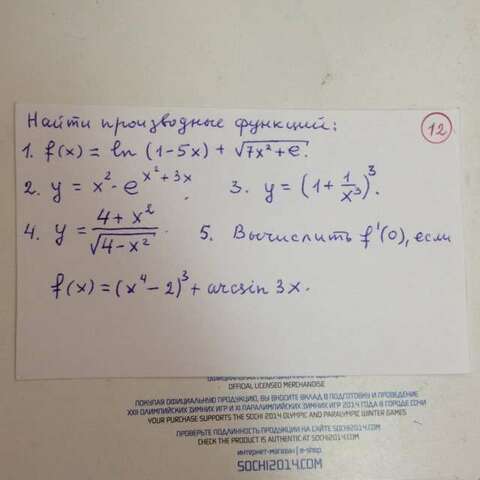 Найти производные функций:
12
1. f(x) = ln (1-5x) + √(7x² + e).
2. y = x² - e^(x² + 3x). 3. y = (1 + 1/x³)³.
4. y = (4 + x²)/√(4 - x²). 5. Вычислить f'(0), если
f(x) = (x⁴ - 2)³ + arcsin 3x.
OFFICIAL LICENSED MERCHANDISE
ПОКУПАЯ ОФИЦИАЛЬНУЮ ПРОДУКЦИЮ, ВЫ ВНОСИТЕ ВКЛАД В ПОДГОТОВКУ И ПРОВЕДЕНИЕ
XXII ОЛИМПИЙСКИХ ЗИМНИХ ИГР И XI ПАРАЛИМПИЙСКИХ ЗИМНИХ ИГР 2014 ГОДА В ГОРОДЕ СОЧИ
YOUR PURCHASE SUPPORTS THE SOCHI 2014 OLYMPIC AND PARALYMPIC WINTER GAMES
ПРОВЕРЬТЕ ПОДЛИННОСТЬ ПРОДУКЦИИ НА САЙТЕ SOCHI2014.COM
CHECK THE PRODUCT IS AUTHENTIC AT SOCHI2014.COM
интернет-магазин | e-shop
SOCHI2014.COM